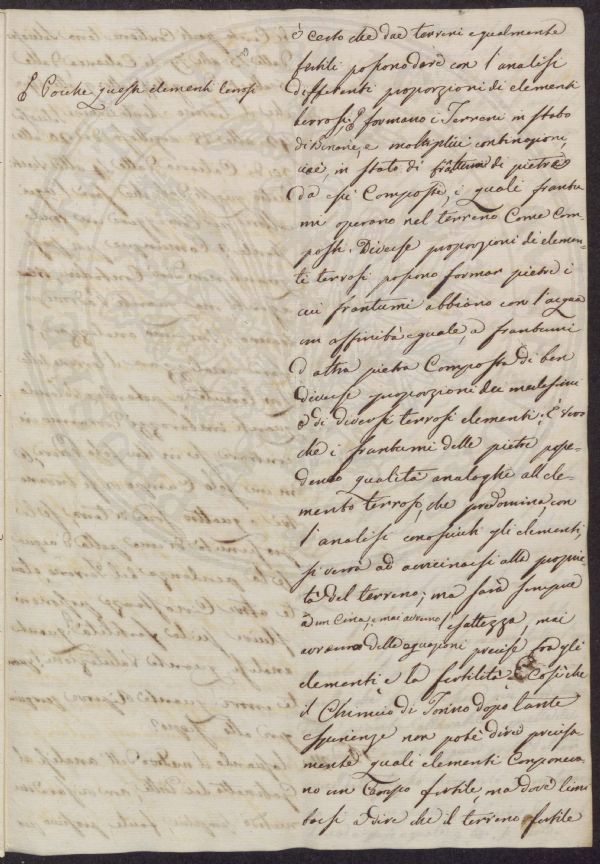 Poiche questi elementi terrosi
è certo che due terreni egualmente
fertili possono dare con l'analisi
differenti proporzioni di elementi
terrosi, formano i Terreni in stato
di Unione, e moltiplici continazioni,
cioè, in stato di frattumi di pietre
da essi Composte, i quali frantu
mi operano nel terreno Come Com
posti. Diverse proporzioni di elemen-
ti terrosi possono formar pietre i
cui frantumi abbiano con l'acqua
un affinità eguale, a frantumi
d'altra pietra Composta di ben
diverse proporzioni dei medesimi
o di diversi terrosi elementi; È vero
che i frantumi delle pietre posse-
dendo qualità analoghe all'ele-
mento terroso, che predomina, con
l'analisi conosciuti gli elementi,
si verrà ad avvicinarsi alla proprie
tà del terreno; ma sarà sempre
e mai avremo esattezza, mai
avremo delle equazioni precise fra gli
elementi e la fertilità. Così che
il Chimico di Torino dopo tante
esperienze non poté dire precisa
mente quali elementi Componeva
no un Campo fertile, ma dovè limi
tarsi a dire che il terreno fertile